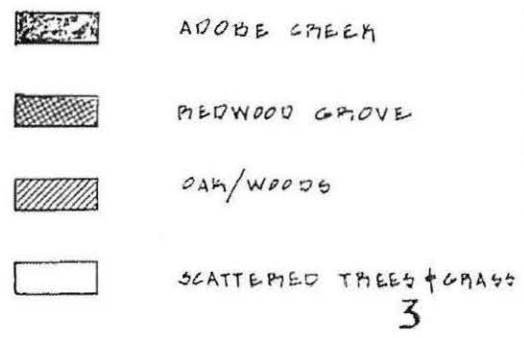 ADOBE CREEK
REDWOOD GROVE
OAK/WOODS
SCATTERED TREES & GRASS
3